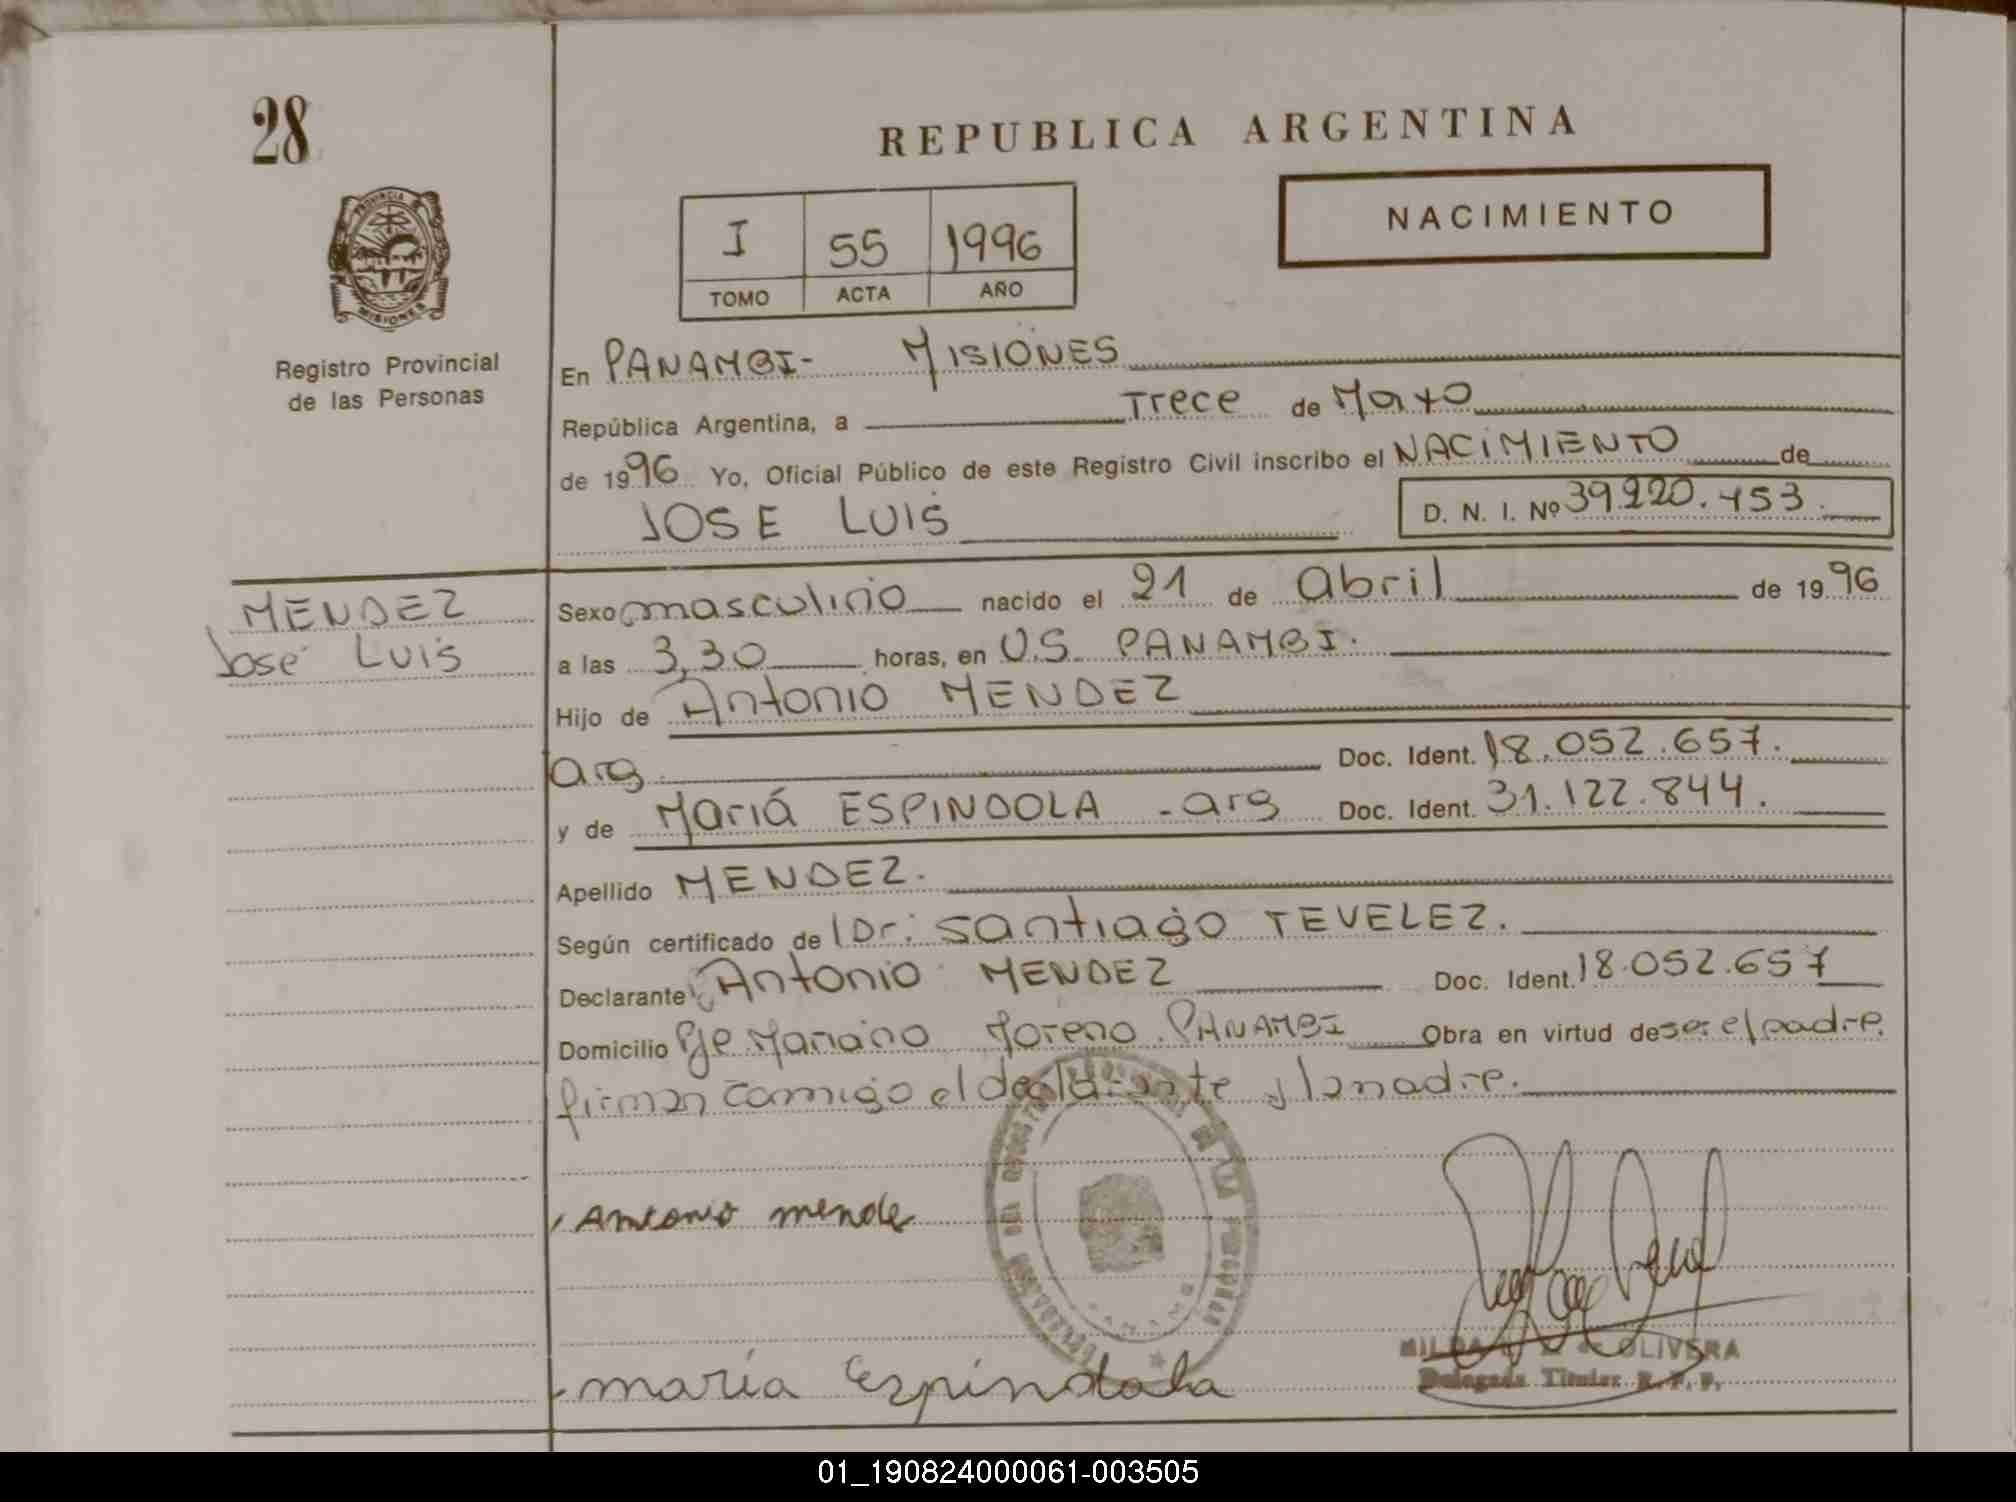 28
REPUBLICA ARGENTINA
PROVINCIA
MISIONES
NACIMIENTO
I 55 1996
TOMO ACTA AÑO
Registro Provincial
de las Personas
En PANAMBI- MISIONES
República Argentina, a Trece de Mayo
de 1996 Yo, Oficial Público de este Registro Civil inscribo el NACIMIENTO de
JOSE LUIS D. N. I. Nº 39.220.453.
MENDEZ
José Luis
Sexo masculino nacido el 21 de abril de 1996
a las 3,30 horas, en U.S. PANAMBI.
Hijo de Antonio MENDEZ
arg. Doc. Ident. 18.052.657.
y de Mariá ESPINDOLA - arg Doc. Ident. 31.122.844.
Apellido MENDEZ.
Según certificado de Dr: Santiago TEVELEZ.
Declarante Antonio MENDEZ Doc. Ident. 18.052.657
Domicilio Pje Mariano Moreno. PANAMBI Obra en virtud de ser el padre.
firman comigo el declarante y la madre.
Antonio mende
maría Espindola
OLIVERA
Delegada Titular R. P. P.
01_190824000061-003505